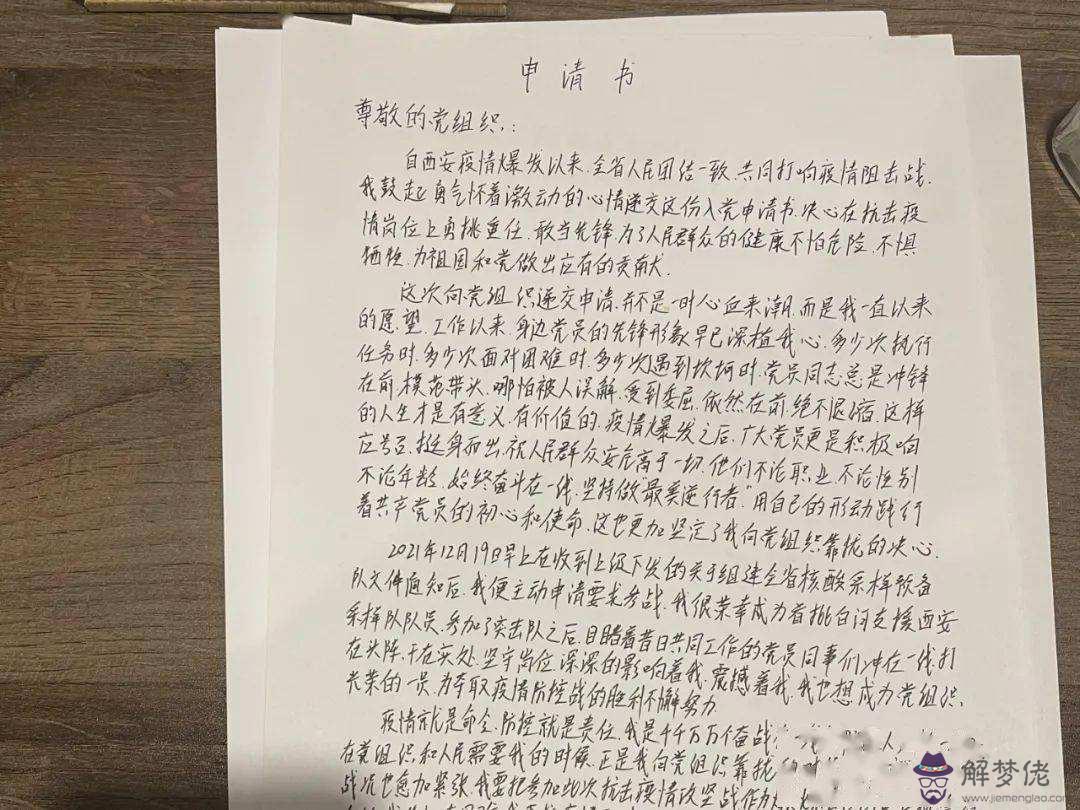 申请书
尊敬的党组织：
自西安疫情爆发以来，全省人民团结一致，共同打响疫情阻击战，
我鼓起勇气怀着激动的心情递交这份入党申请书，决心在抗击疫
情岗位上勇挑重任，敢当先锋，为了人民群众的健康不怕危险，不惧
牺牲，为祖国和党做出应有的贡献。
这次向党组织递交申请，并不是一时心血来潮，而是我一直以来
的愿望，工作以来，身边党员的先锋形象早已深植我心，多少次执行
任务时，多少次面对困难时，多少次遇到坎坷时，党员同志总是冲锋
在前，模范带头，哪怕被人误解，受到委屈，依然在前，绝不退缩，这样
的人生才是有意义，有价值的，疫情爆发之后，广大党员更是积极响
应号召，挺身而出，视人民群众安危高于一切，他们不论职业，不论性别
不论年龄，始终奋斗在一线，坚持做最美逆行者，用自己的形动践行
着共产党员的初心和使命，这也更加坚定了我向党组织靠拢的决心。
2021年12月19日早上在收到上级下发的关于组建全省核酸采样预备
队文件通知后，我便主动申请要求参战，我很荣幸成为首批白河支援西安
采样队队员，参加了突击队之后，目睹着昔日共同工作的党员同事们冲在一线打
在头阵，干在实处，坚守岗位，深深的影响着我，震撼着我，我也想成为党组织
光荣的一员，为夺取疫情防控战的胜利不懈努力
疫情就是命令，防控就是责任，我是千千万万个奋战
在党组织和人民需要我的时候，正是我向党组织靠拢
战况也愈加紧张，我要把参加此次抗击疫情攻坚战作为
解梦佬
www.jiemenglao.com